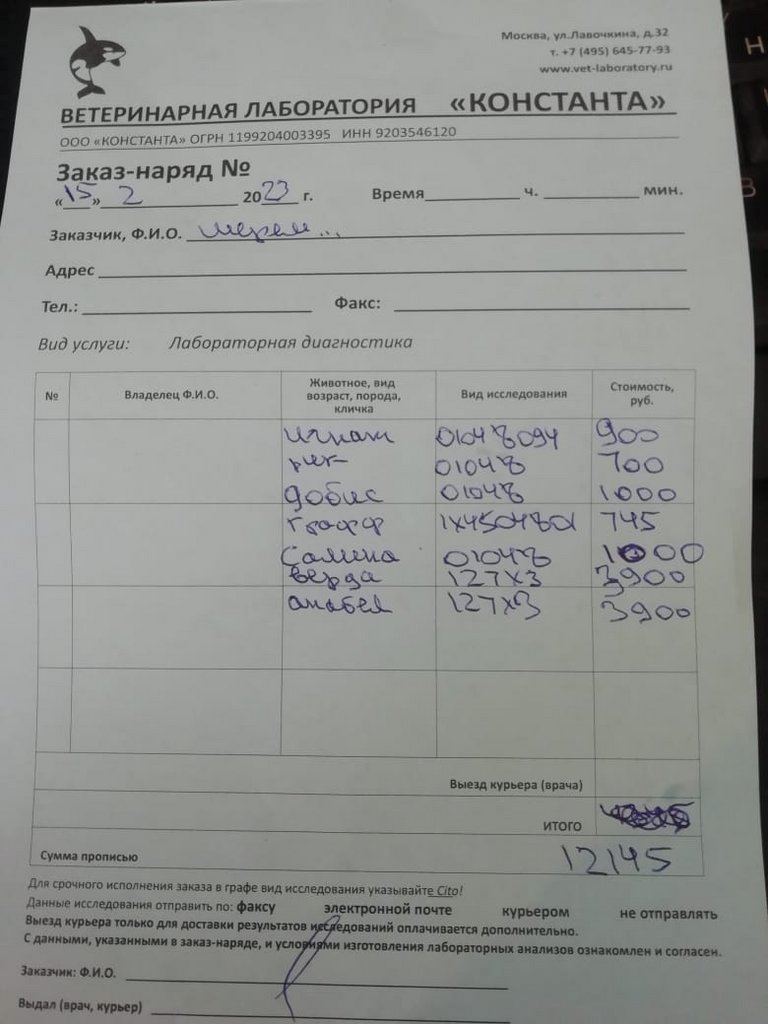 Москва, ул.Лавочкина, д.32
т. +7 (495) 645-77-93
www.vet-laboratory.ru
ВЕТЕРИНАРНАЯ ЛАБОРАТОРИЯ «КОНСТАНТА»
ООО «КОНСТАНТА» ОГРН 1199204003395 ИНН 9203546120
Заказ-наряд №
«15» 2 2023 г. Время ч. мин.
Заказчик, Ф.И.О.
Адрес
Тел.: Факс:
Вид услуги: Лабораторная диагностика
№ Владелец Ф.И.О. Животное, вид возраст, порода, кличка Вид исследования Стоимость, руб.
900
01048 700
добис 01048 1000
графф 745
Салина 01048 1000
верда 127х3 3900
анабел 127х3 3900
Выезд курьера (врача)
ИТОГО
Сумма прописью 12145
Для срочного исполнения заказа в графе вид исследования указывайте Cito!
Данные исследования отправить по: факсу электронной почте курьером не отправлять
Выезд курьера только для доставки результатов исследований оплачивается дополнительно.
С данными, указанными в заказ-наряде, и условиями изготовления лабораторных анализов ознакомлен и согласен.
Заказчик: Ф.И.О.
Выдал (врач, курьер)